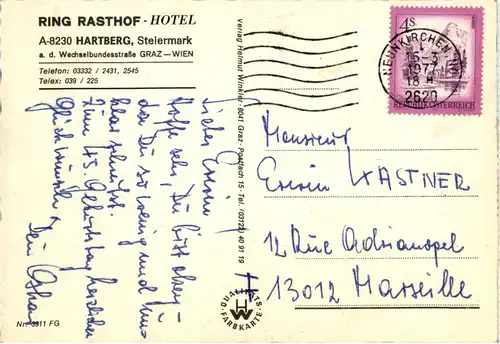 RING RASTHOF - HOTEL
A-8230 HARTBERG, Steiermark
a. d. Wechselbundesstraße GRAZ — WIEN
Telefon: 03332 / 2431, 2545
Telex: 039 / 225
Lieber Erwin,
hoffe sehr, Du bist oben-
da Du so wenig und un-
klar schreibst.
Zum 43 Geburtstag herzlichen
Glückwunsch
Dein
Nr. 3911 FG
Verlag Helmut Winkler · 8041 Graz · Postfach 15 · Tel. (03122) 40 91 19
QUALITÄTS
HW
FARBKARTE
4S
REPUBLIK ÖSTERREICH
NEUNKIRCHEN, NÖ
1977
18 H
2620
Monsieur
Erwin KASTNER
12 Rue Adrianopel
13012 Marseille